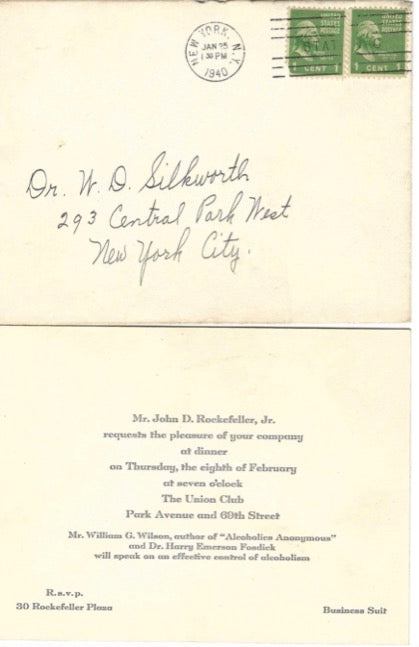 NEW YORK, N.Y.
JAN 25
1 30 PM
1940
UNITED STATES POSTAGE
1 CENT 1
UNITED STATES POSTAGE
1 CENT 1
Dr. W. D. Silkworth
293 Central Park West
New York City.
Mr. John D. Rockefeller, Jr.
requests the pleasure of your company
at dinner
on Thursday, the eighth of February
at seven o'clock
The Union Club
Park Avenue and 69th Street
Mr. William G. Wilson, author of "Alcoholics Anonymous"
and Dr. Harry Emerson Fosdick
will speak on an effective control of alcoholism
R.s.v.p.
30 Rockefeller Plaza
Business Suit